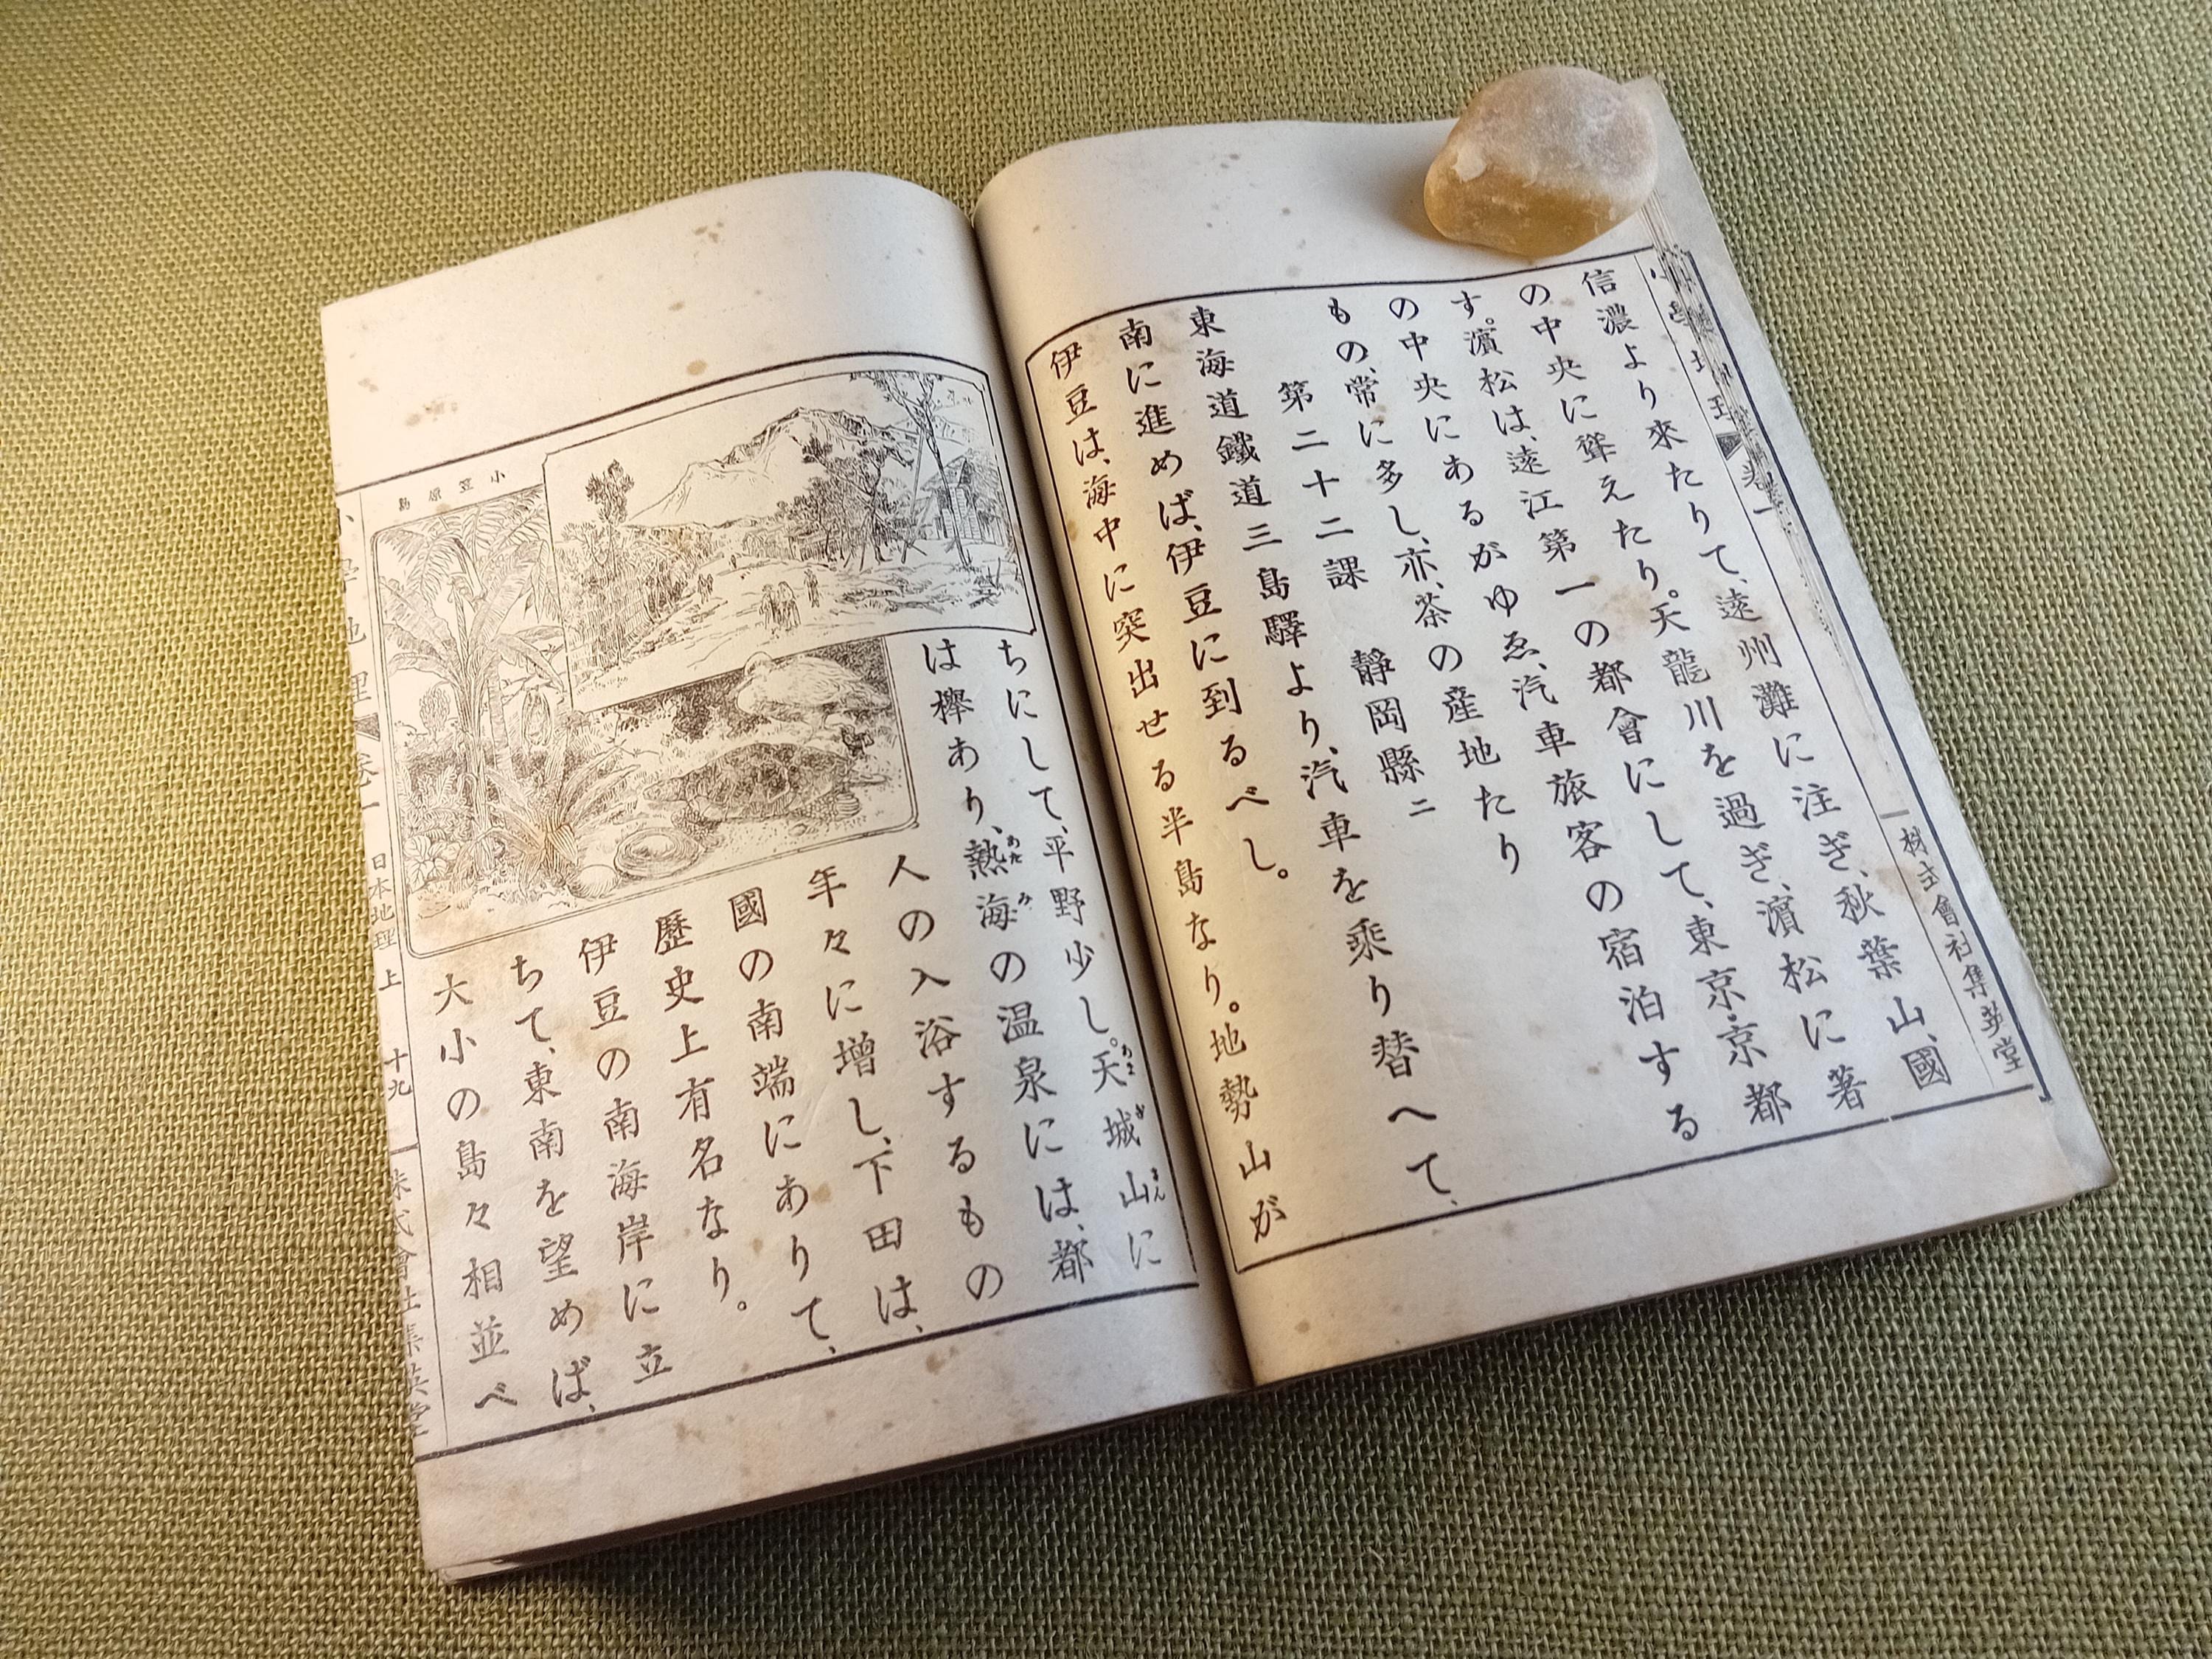 小學地理 卷一 株式會社集英堂
信濃より來たりて、遠州灘に注ぎ、秋葉山、國
の中央に聳えたり。天龍川を過ぎ、濱松に著
す。濱松は、遠江第一の都會にして、東京・京都
の中央にあるがゆゑ、汽車旅客の宿泊する
もの、常に多し、亦、茶の産地たり
第二十二課 靜岡縣 ニ
東海道鐵道三島驛より、汽車を乘り替へて、
南に進めば、伊豆に到るべし。
伊豆は、海中に突出せる半島なり。地勢山が
ちにして、平野少し。天城山に
は欅あり、熱海の温泉には、都
人の入浴するもの
年々に増し、下田は、
國の南端にありて、
歷史上有名なり。
伊豆の南海岸に立
ちて、東南を望めば、
大小の島々相並べ
小笠原島
小學地理 卷一 日本地理 上 十九 株式會社集英堂